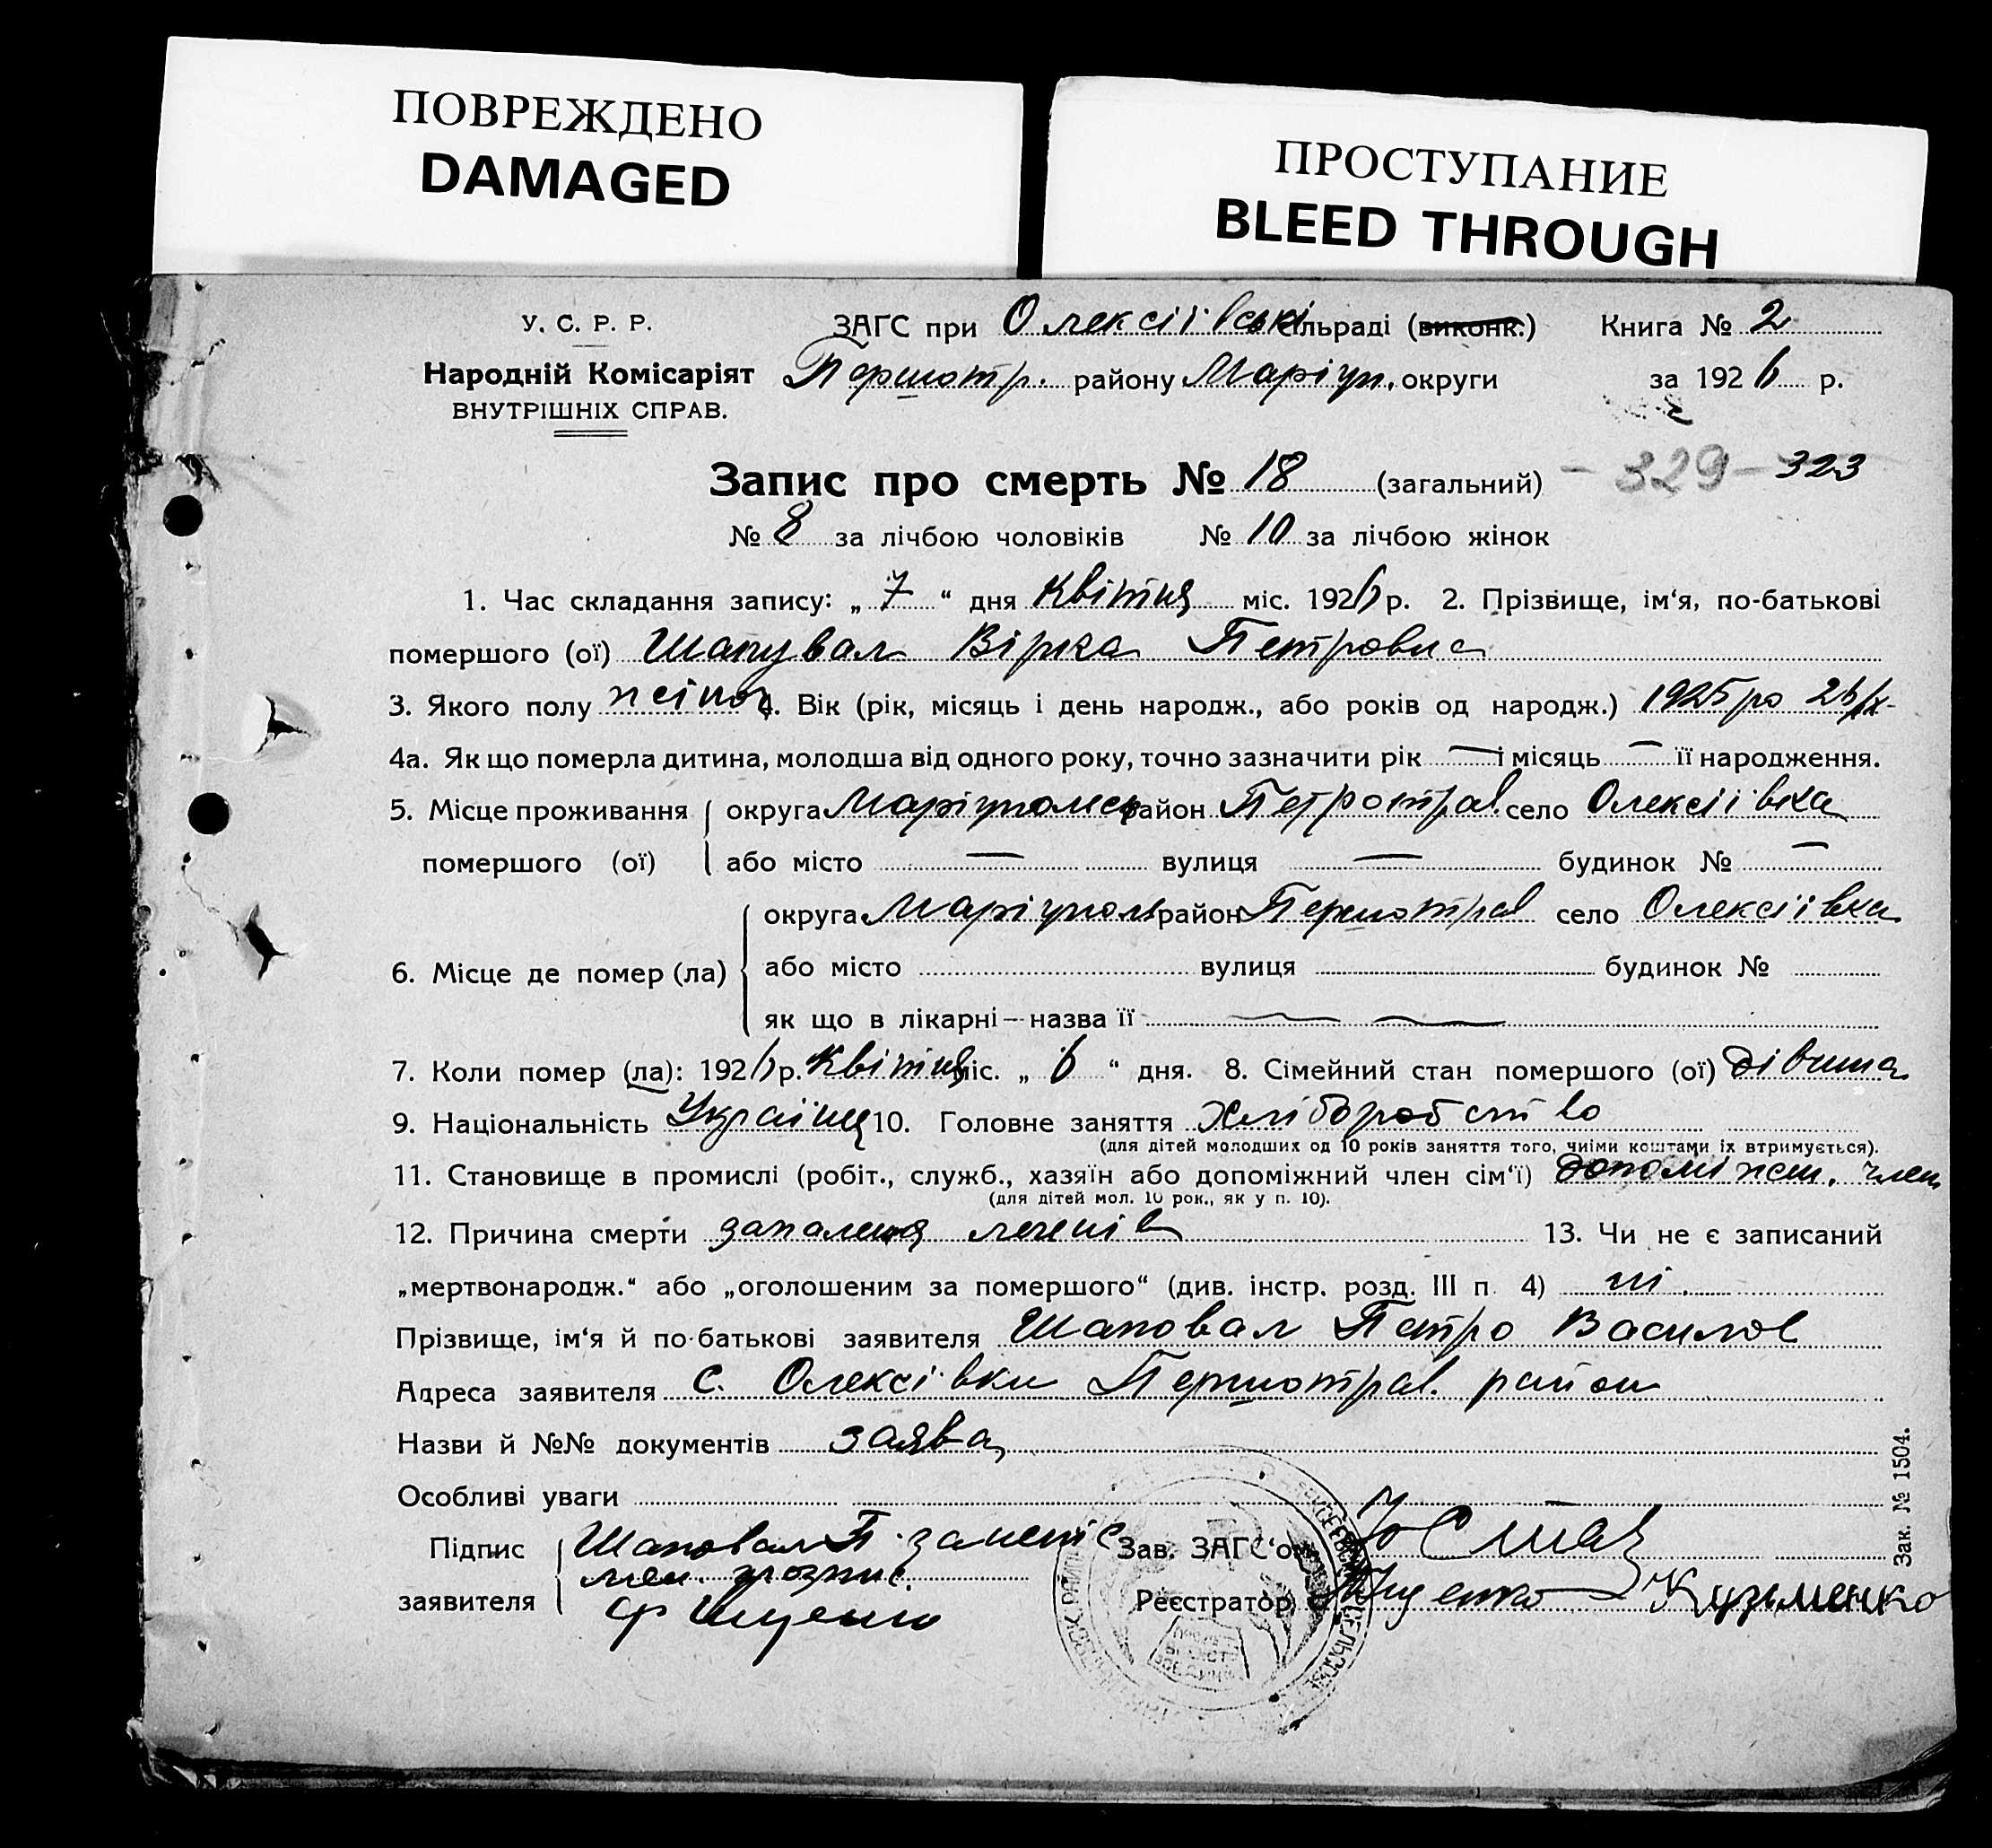 ПОВРЕЖДЕНО
DAMAGED
ПРОСТУПАНИЕ
BLEED THROUGH
У. С. Р. Р.
Народній Комісаріят
ВНУТРІШНІХ СПРАВ.
ЗАГС при Олексіївські сільраді (виконк.) Книга № 2
Першотр. району Маріуп. округи за 1926 р.
Запис про смерть № 18 (загальний) - 329 - 323
№ 8 за лічбою чоловіків № 10 за лічбою жінок
1. Час складання запису: „ 7 “ дня Квітня міс. 1926 р. 2. Прізвище, ім‘я, по-батькові
помершого (ої) Шапувал Вірка Петровна
3. Якого полу жіноч 4. Вік (рік, місяць і день народж., або років од народж.) 1925 ро 26/IX-
4а. Як що померла дитина, молодша від одного року, точно зазначити рік — і місяць — її народження.
5. Місце проживання округа Маріупольск район Петротрав. село Олексіівка
помершого (ої) або місто — вулиця — будинок № —
округа Маріуполь район Першотрав село Олексіівка
6. Місце де помер (ла) або місто вулиця будинок №
як що в лікарні — назва її — —
7. Коли помер (ла): 1926 р. Квітня міс. „ 6 “ дня. 8. Сімейний стан помершого (ої) дівчина
9. Національність Україна 10. Головне заняття Хліборобство
(для дітей молодших од 10 років заняття того, чиїми коштами їх втримується).
11. Становище в промислі (робіт., служб., хазяїн або допоміжний член сім‘ї) допоміжн. член
(для дітей мол. 10 рок., як у п. 10).
12. Причина смерти запалення легенів 13. Чи не є записаний
„мертвонародж.“ або „оголошеним за помершого“ (див. інстр. розд. III п. 4) ні.
Прізвище, ім‘я й по-батькові заявителя Шаповал Петро Василов
Адреса заявителя с. Олексіївки Першотрав. район
Назви й №№ документів заява
Особливі уваги
Підпис Шаповал П. Зав. ЗАГС‘ом
заявителя Реєстратор Кузьменко
Зак. № 1504.